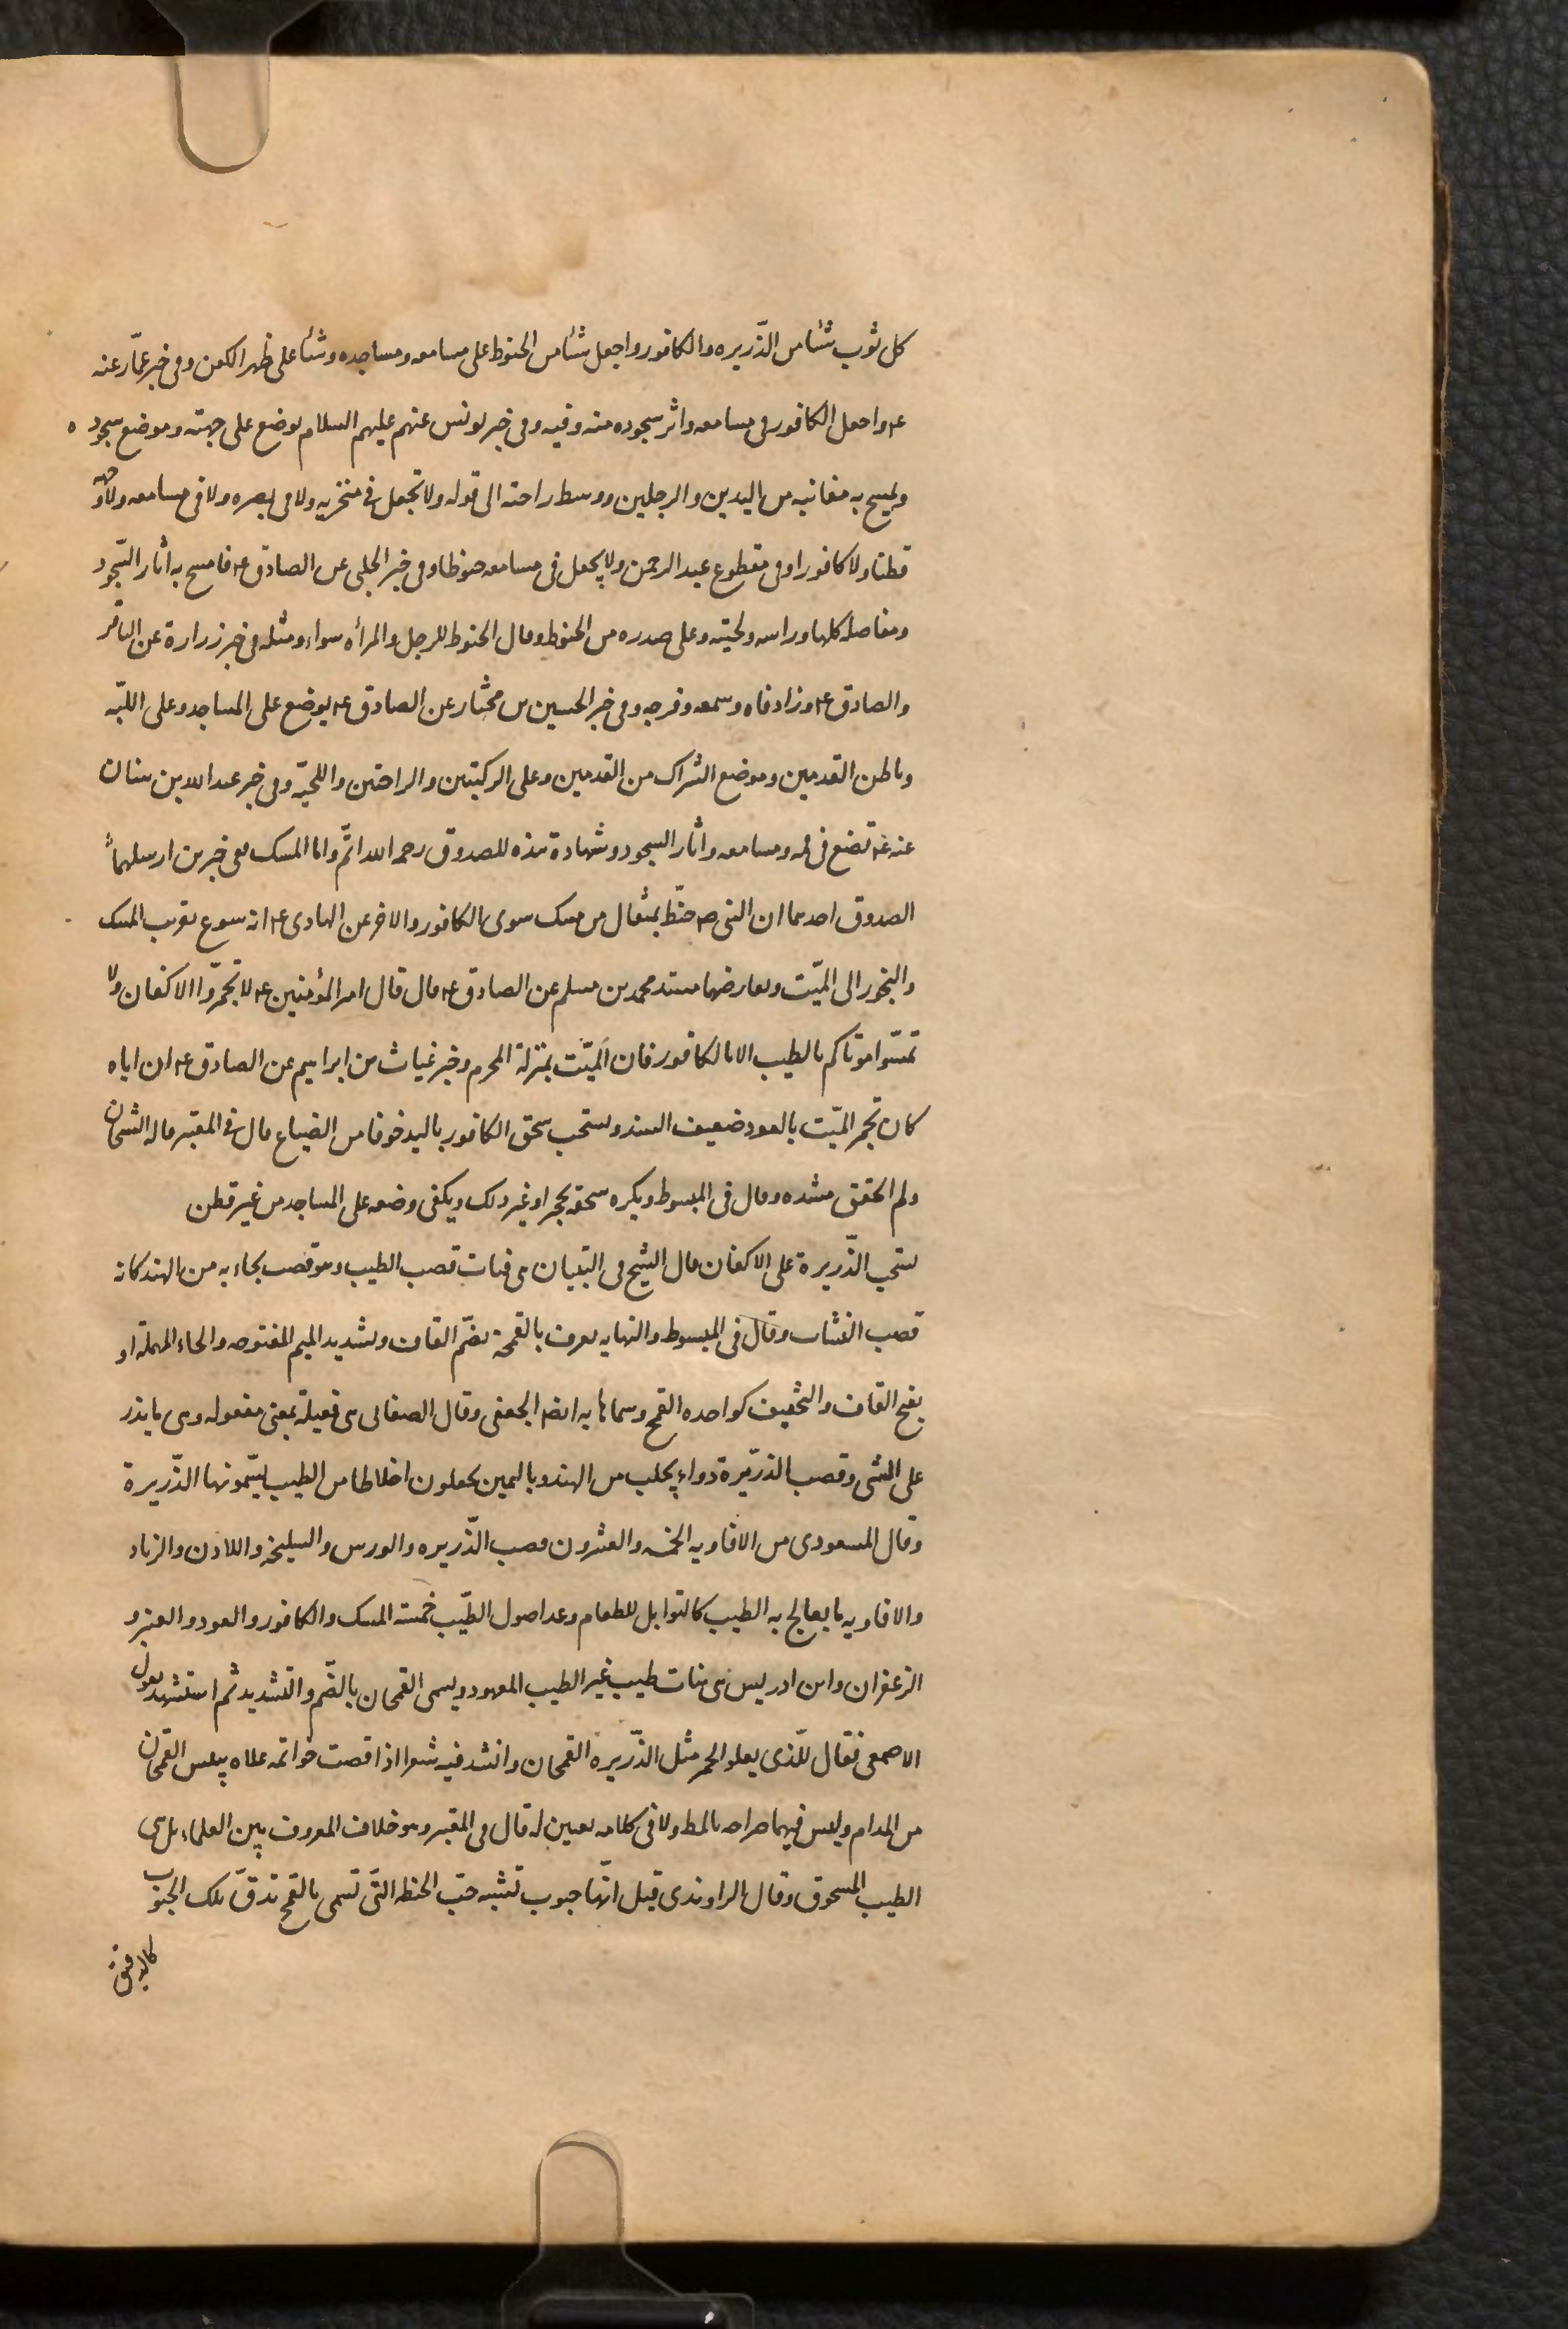 كل ثوب شئا من الذّريره والكافور واجعل شئا من الحنوط على مسامعه ومساجده وشئا على ظهر الكفن وفى خبر عمّار عنه
ع واجعل الكافور فى مسامعه واثر سجوده منه وفيه وفى خبر يونس عنهم عليهم السلام يوضع على جبهته وموضع سجوده
ويمسح به مغابنه من اليدين والرجلين ووسط راحته الى قوله ولا تجعل فى منخريه ولا فى بصره ولا فى مسامعه ولا وجهه
قطنا ولا كافورا وفى مقطوع عبد الرحمن ولا يجعل فى مسامعه حنوطا وفى خبر الحلبى عن الصادق ع فامسح به اثار السّجود
ومفاصله كلها وراسه ولحيته وعلى صدره من الحنوط وقال الحنوط للرجل والمرأه سواء ومثله فى خبر زرارة عن الباقر
والصادق ع وزاد فاه وسمعه وفرجه وفى خبر الحسين بن مختار عن الصادق ع يوضع على المساجد وعلى اللبّه
وباطن القدمين وموضع الشراك من القدمين وعلى الركبتين والراحتين واللحيّة وفى خبر عبد الله بن سنان
عنه ع تضع فى فمه ومسامعه واثار السجود وشهادة هذه للصدوق رحمه الله اتمّ واما المسك ففى خبرين ارسلهما
الصدوق احدهما ان النبى ص حنّط بمثقال من مسك سوى الكافور والاخر عن الهادى ع انه سوغ تقريب المسك
والبخور الى الميّت ويعارضها مسند محمد بن مسلم عن الصادق ع قال قال امير المؤمنين ع لا تجمّروا الاكفان ولا
تمسّوا موتاكم بالطيب الا بالكافور فان الميّت بمنزلة المحرم وخبر غياث بن ابراهيم عن الصادق ع ان اباه
كان تجمر الميّت بالعود ضعيف السند ويستحب سحق الكافور باليد خوفا من الضياع قال فى المعتبر قاله الشيخان
ولم اتحقق مسنده وقال فى المبسوط ويكره سحقه بحجر او غير ذلك ويكفى وضعه على المساجد من غير قطن
يستحب الذّريرة على الاكفان قال الشيخ فى التبيان هى فتات قصب الطيب وهو قصب يجاء به من الهند كانه
قصب النشاب وقال فى المبسوط والنهايه يعرف بالقمحة بضمّ القاف وتشديد الميم المفتوحه والحاء المهملة او
بفتح القاف والتخفيف كواحده القمح وسماها به ايضا الجعفى وقال الصغانى هى فعيلة بمعنى مفعوله وهى ما يذر
على الشى وقصب الذرّيرة دواء يجلب من الهند وباليمين يجعلون اخلاطا من الطيب يسّمونها الذّريرة
وقال المسعودى من الافاويه الخمسه والعشرون قصب الذّريره والورس والسليخة واللاذن والزباد
والافاويه ما يعالج به الطيب كالتوابل للطعام وعد اصول الطّيب خمسة المسك والكافور والعود والعنبر و
الزعفران وابن ادريس هى نبات طيب غير الطيب المعهود ويسمى القمحان بالضّم والتشديد ثم استشهد بقول
الاصمعى فقال للّذى يعلو الخمر مثل الذّريره القمحان وانشد فيه شعرا اذا فضت خواتمه علاه يبيس القمحان
من المدام وليس فيهما صراحه بالمط ولا فى كلامه تعيين له قال فى المعتبر وهو خلاف المعروف بين العلماء بل هى
الطيب المسحوق وقال الراوندى قيل انّها حبوب تشبه حبّ الحنطه التّى تسمى بالقمح تدقّ تلك الحبوب
كالدقيق